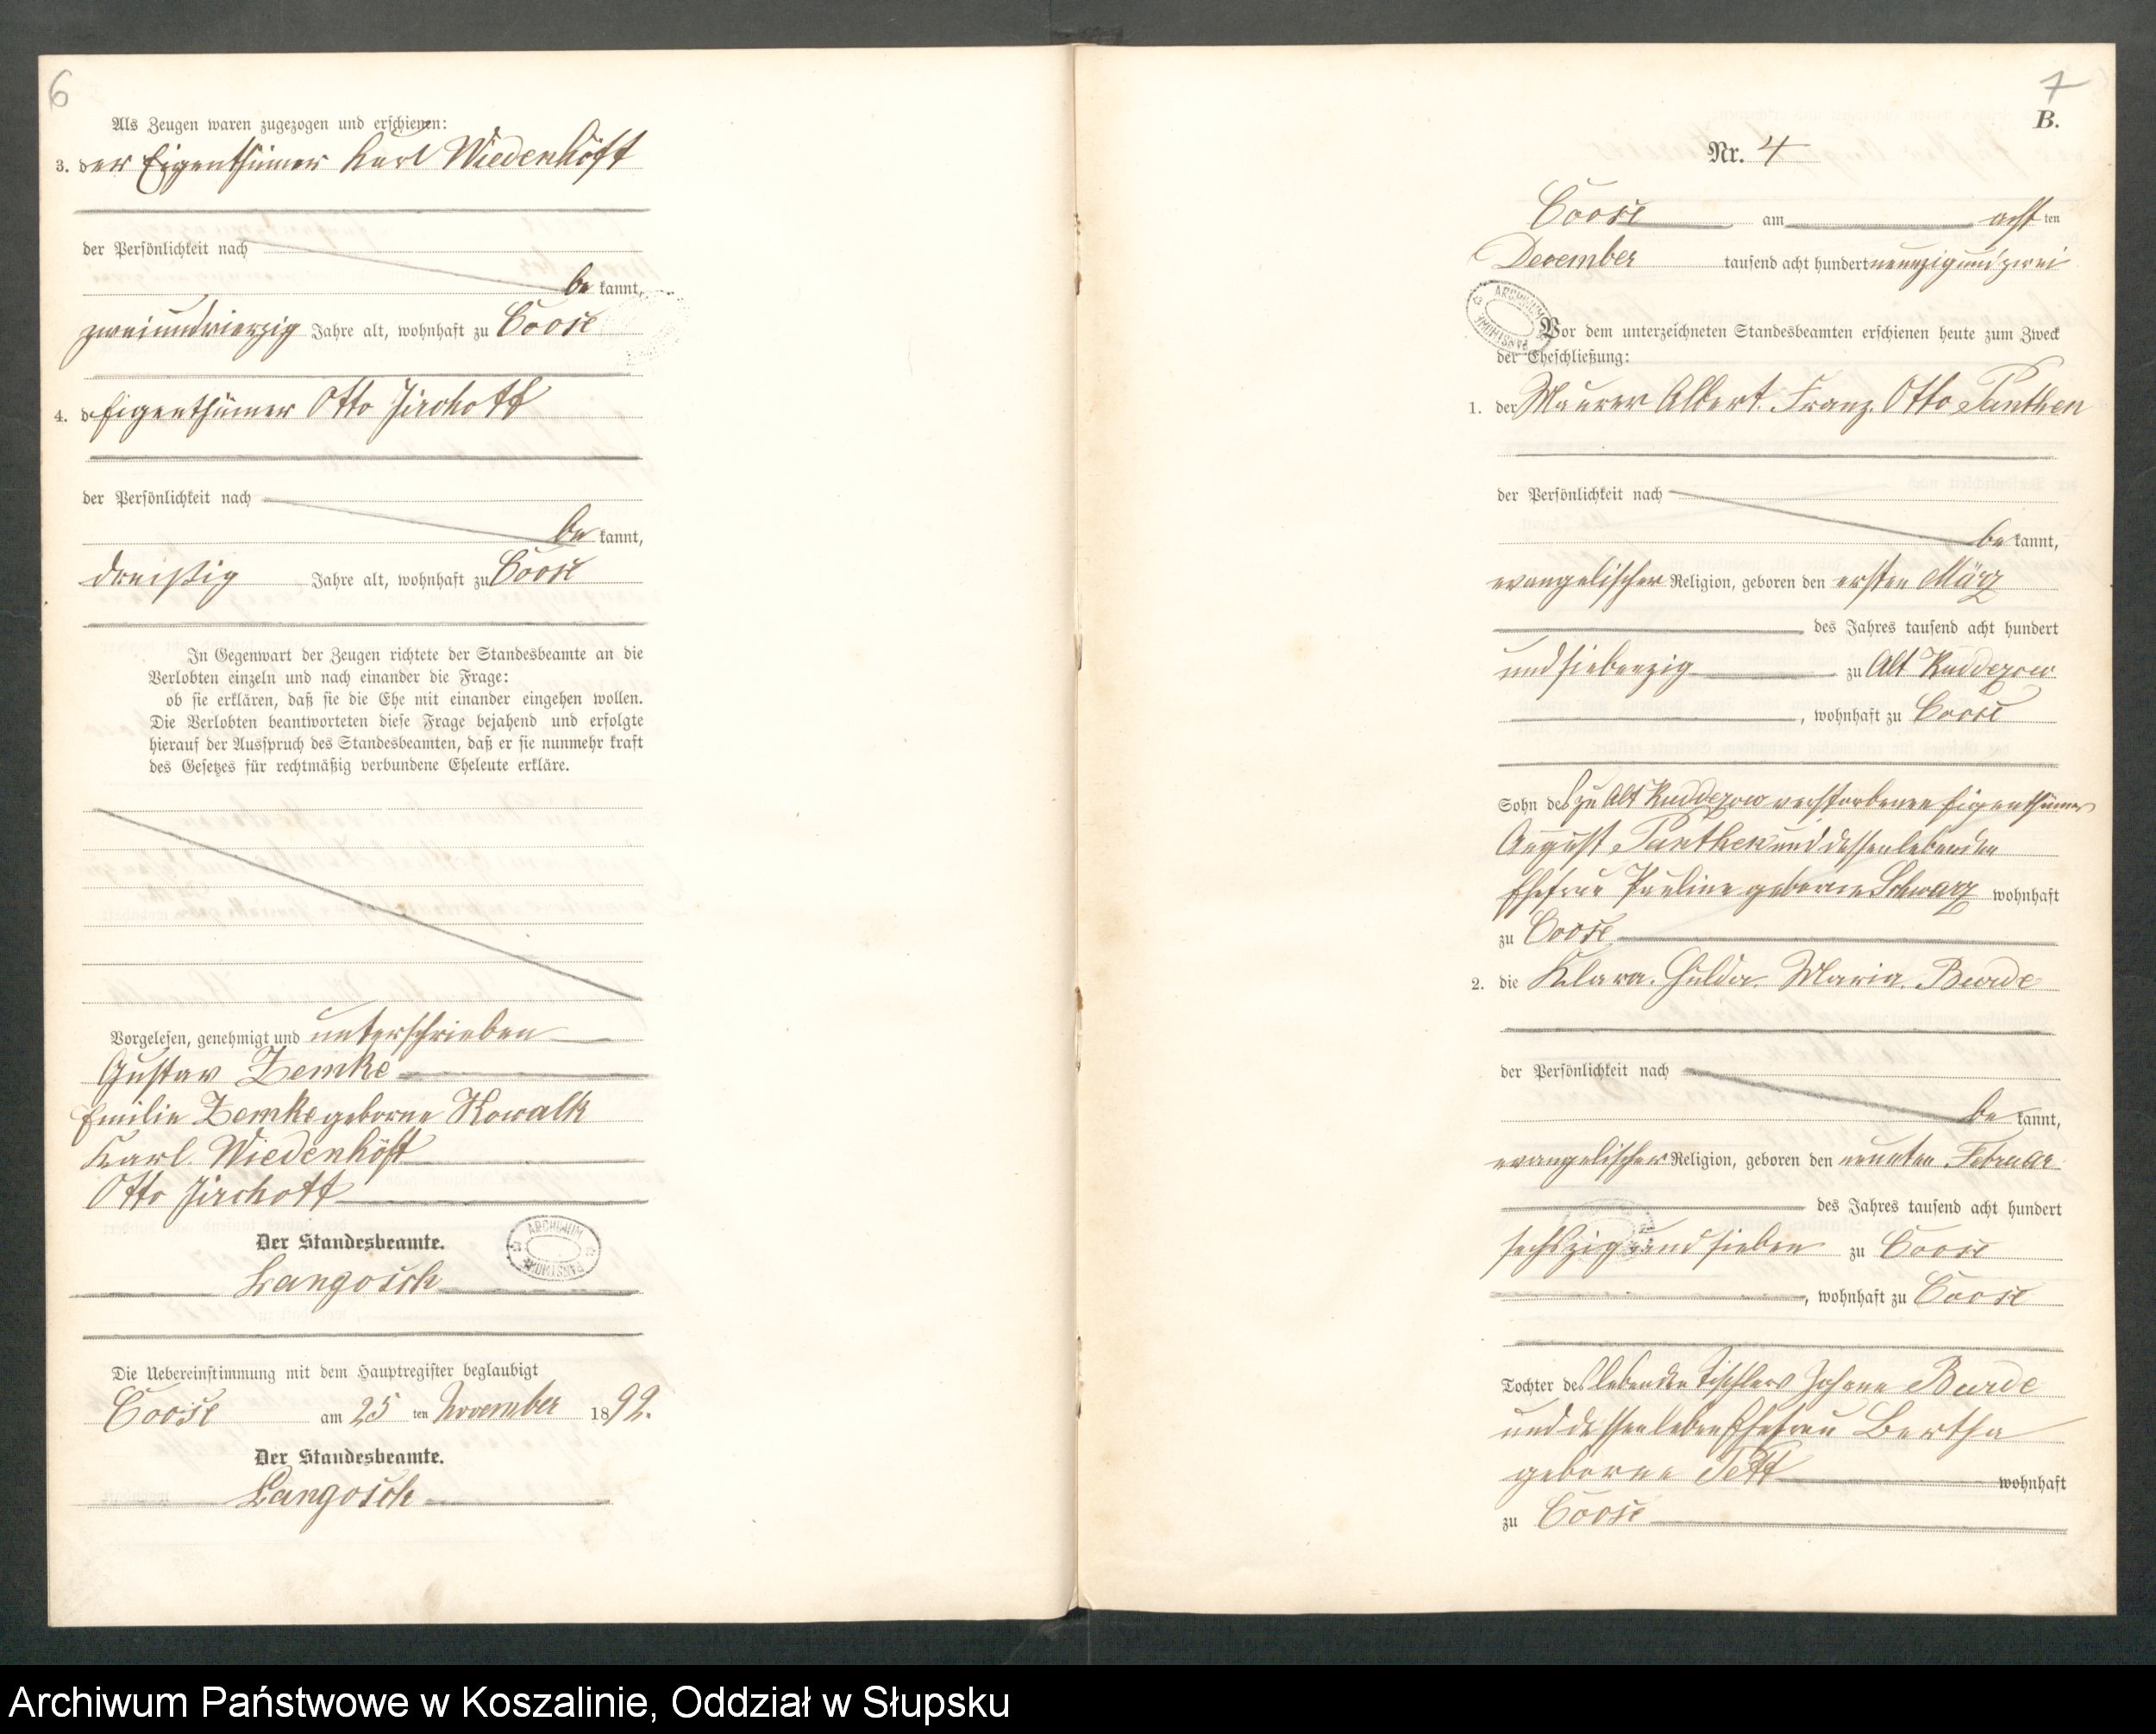 6
Als Zeugen waren zugezogen und erschienen:
3. der Eigenthümer Karl Wiedenhöft
der Persönlichkeit nach
be kannt,
zweiundvierzig Jahre alt, wohnhaft zu Coose
4. d Eigenthümer Otto Jirchott
der Persönlichkeit nach
be kannt,
dreißig Jahre alt, wohnhaft zu Coose
In Gegenwart der Zeugen richtete der Standesbeamte an die
Verlobten einzeln und nach einander die Frage:
ob sie erklären, daß sie die Ehe mit einander eingehen wollen.
Die Verlobten beantworteten diese Frage bejahend und erfolgte
hierauf der Ausspruch des Standesbeamten, daß er sie nunmehr kraft
des Gesetzes für rechtmäßig verbundene Eheleute erkläre.
Vorgelesen, genehmigt und unterschrieben
Gustav Zemke
Emilie Zemke geborne Kowalk
Karl Wiedenhöft
Otto Jirchott
Der Standesbeamte.
Langosch
Die Uebereinstimmung mit dem Hauptregister beglaubigt
Coose am 25 ten November 1892.
Der Standesbeamte.
Langosch
7
B.
Nr. 4
Coose am acht ten
December tausend acht hundert neunzig und zwei
Vor dem unterzeichneten Standesbeamten erschienen heute zum Zweck
der Eheschließung:
1. der Maurer Albert. Franz. Otto Panthen
der Persönlichkeit nach
be kannt,
evangelischer Religion, geboren den ersten März
des Jahres tausend acht hundert
und siebenzig zu Alt Kuddezow
, wohnhaft zu Coose
Sohn des zu Alt Kuddezow verstorbenen Eigenthümer
August Panthen und dessen lebenden
Ehefrau Pauline geborne Schwarz wohnhaft
zu Coose
2. die Klara. Hulda. Maria. Burde
der Persönlichkeit nach
be kannt,
evangelischer Religion, geboren den neunten Februar
des Jahres tausend acht hundert
sechszig und sieben zu Coose
, wohnhaft zu Coose
Tochter des lebenden Tischlers Johann Burde
und dessen leben Ehefrau Bertha
geborne Tett wohnhaft
zu Coose
Archiwum Państwowe w Koszalinie, Oddział w Słupsku